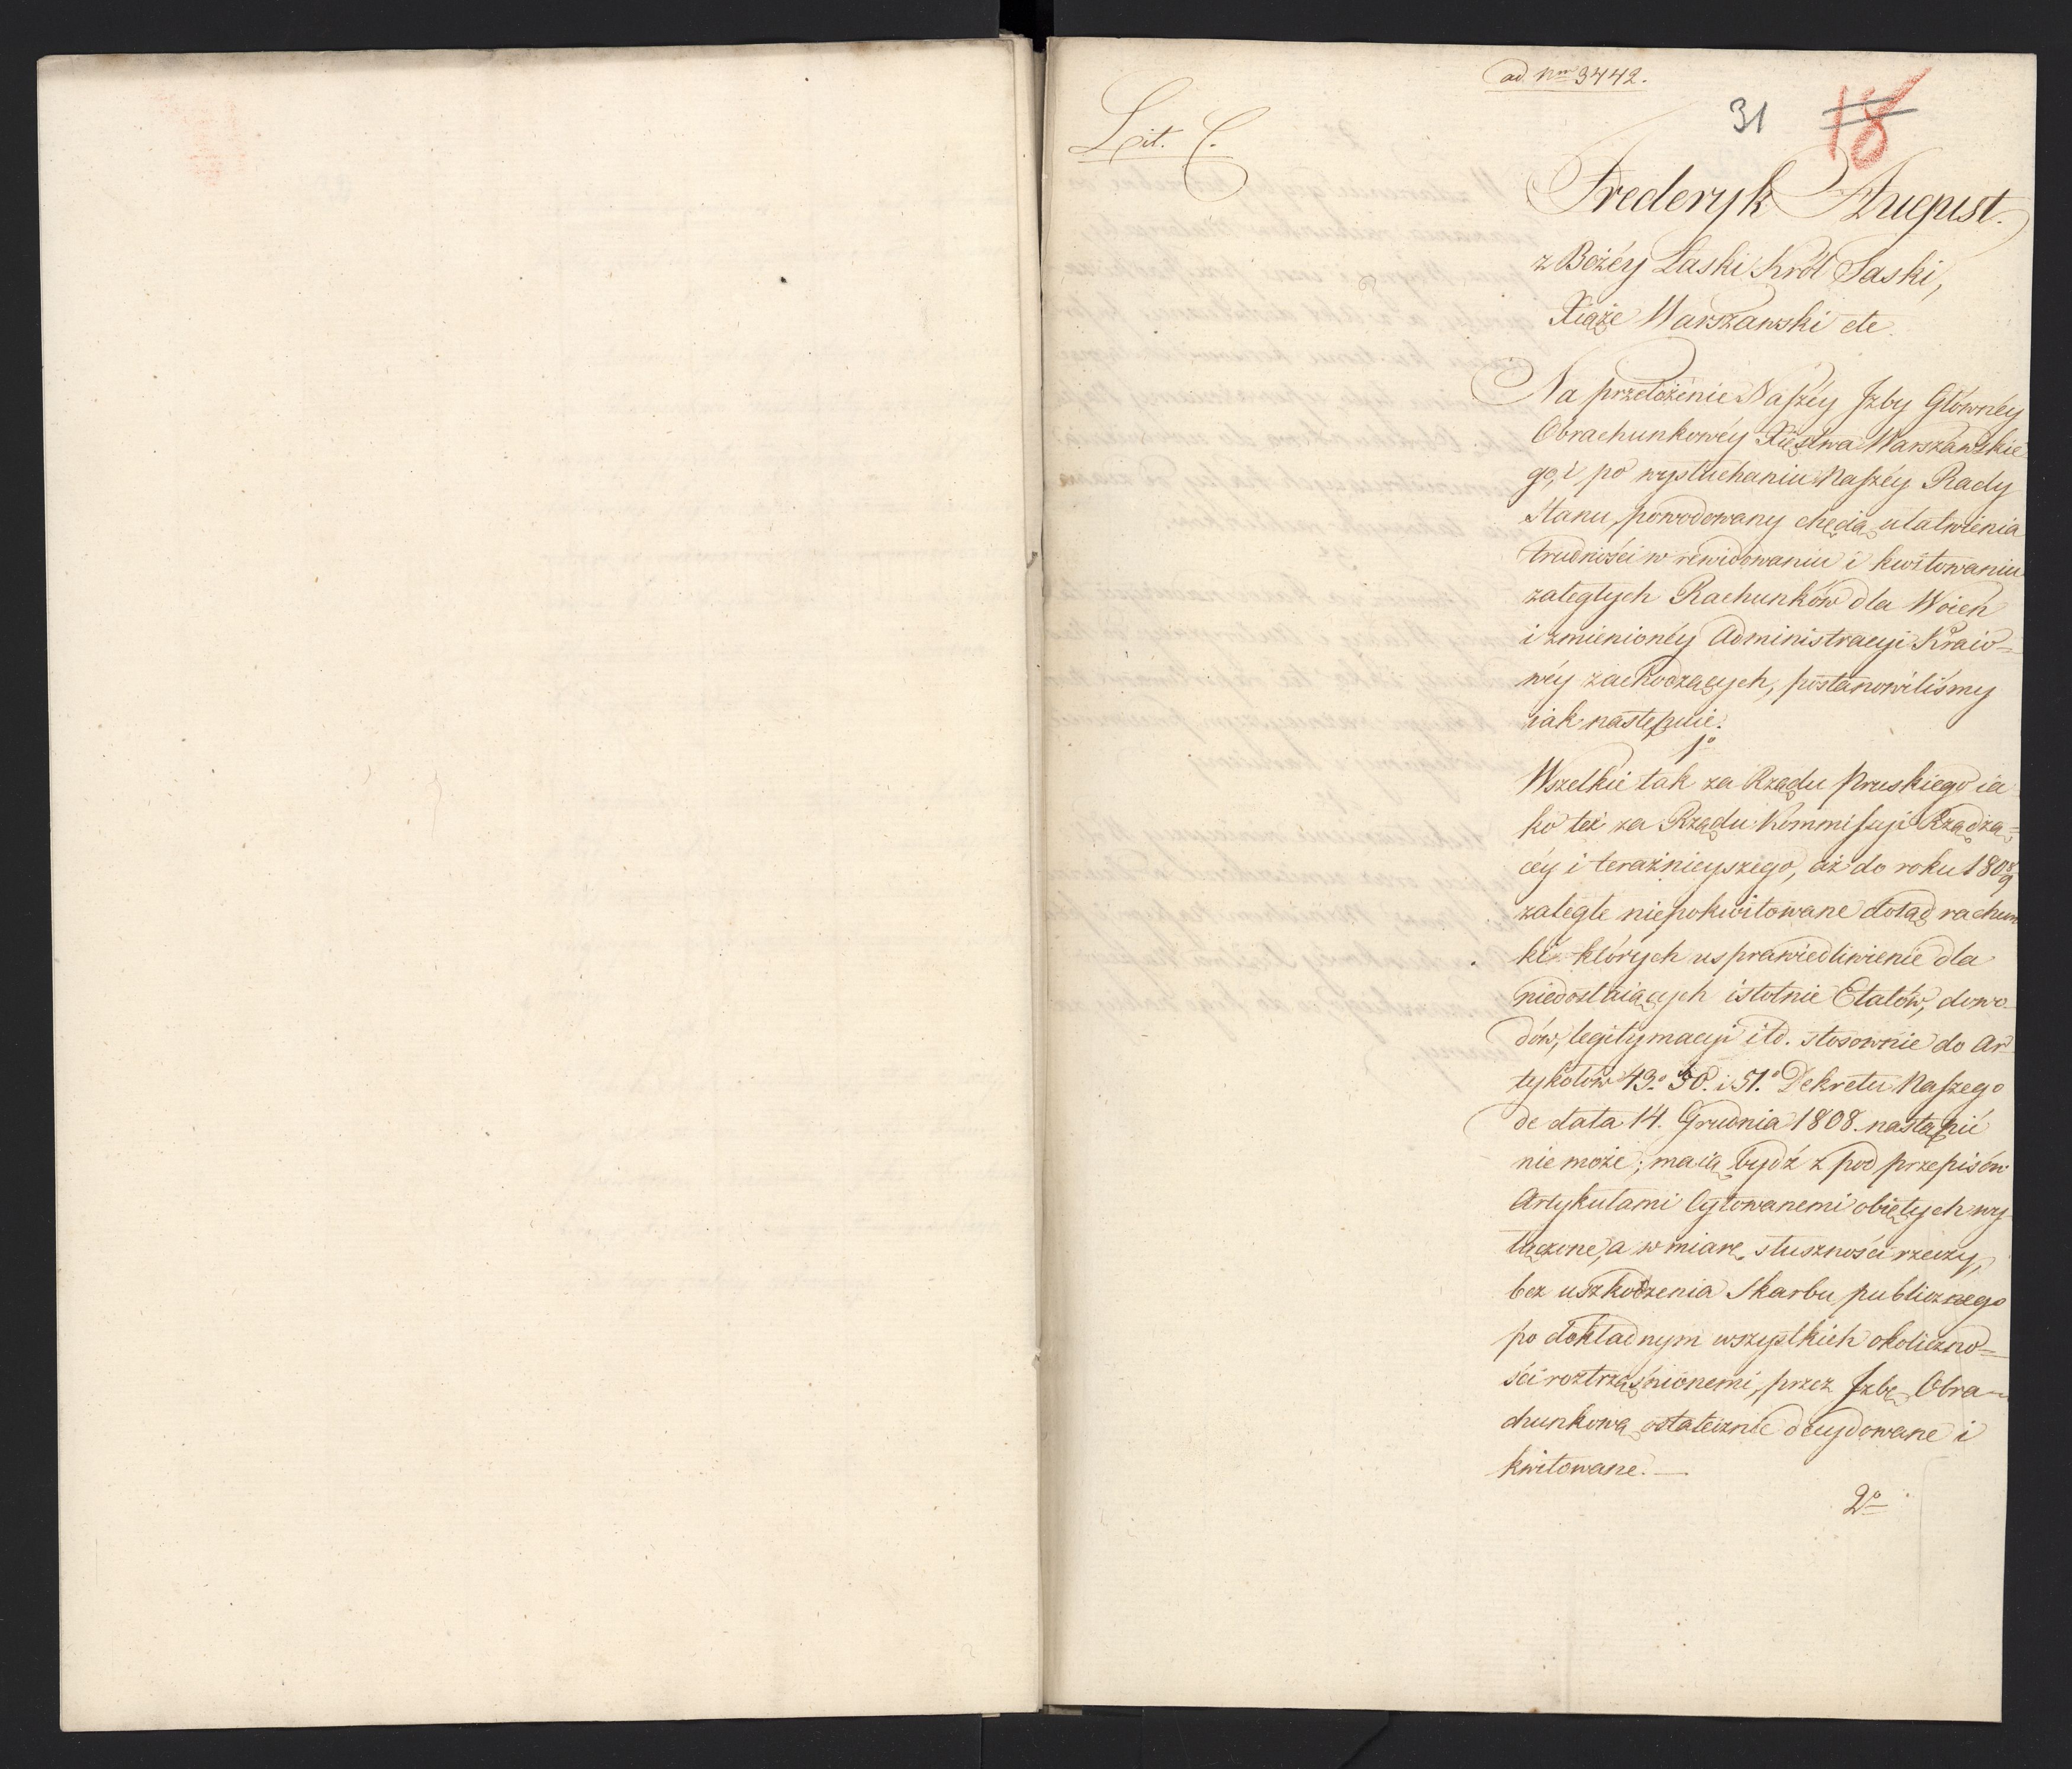 ad Nm 3442.
31 18
Lit. C.
Frederyk August
z Bożéy Łaski Król Saski,
Xiąże Warszawski etc.
Na przełożenie Naszéy Izby Głównéy
Obrachunkowéy Xięstwa Warszawskie
go, i po wysłuchaniu Naszéy Rady
Stanu, powodowany chęcią ułatwienia
trudności w rewidowaniu i kwitowaniu
zaległych Rachunków dla Woien
i zmienionéy Administracyi Kraio=
wéy zachodzących, postanowiliśmy
iak następuie:
1o
Wszelkie tak za Rządu Pruskiego ia
ko też za Rządu Kommissyi Rządzą=
céy i teraźnieyszego, aż do roku 1808/9
zaległe niepokwitowane dotąd rachun
ki których usprawiedliwienie dla
niedostaiących istotnie Etatów, dowo-
dów, legitymacyi itd. stosownie do Ar
tykołów 49.o 50. i 51.o Dekretu Naszego
de data 14. Grudnia 1808. nastąpić
nie może; maią bydź z pod przepisów
Artykułami Cytowanemi obiętych wy
łączone, a w miarę słuszności rzeczy,
bez uszkodzenia Skarbu publicznego
po dokładnym wszystkich okoliczno=
ści roztrząśnionemi, przez Izbę Obra-
chunkową ostatecznie decydowane i
kwitowane. —
2o